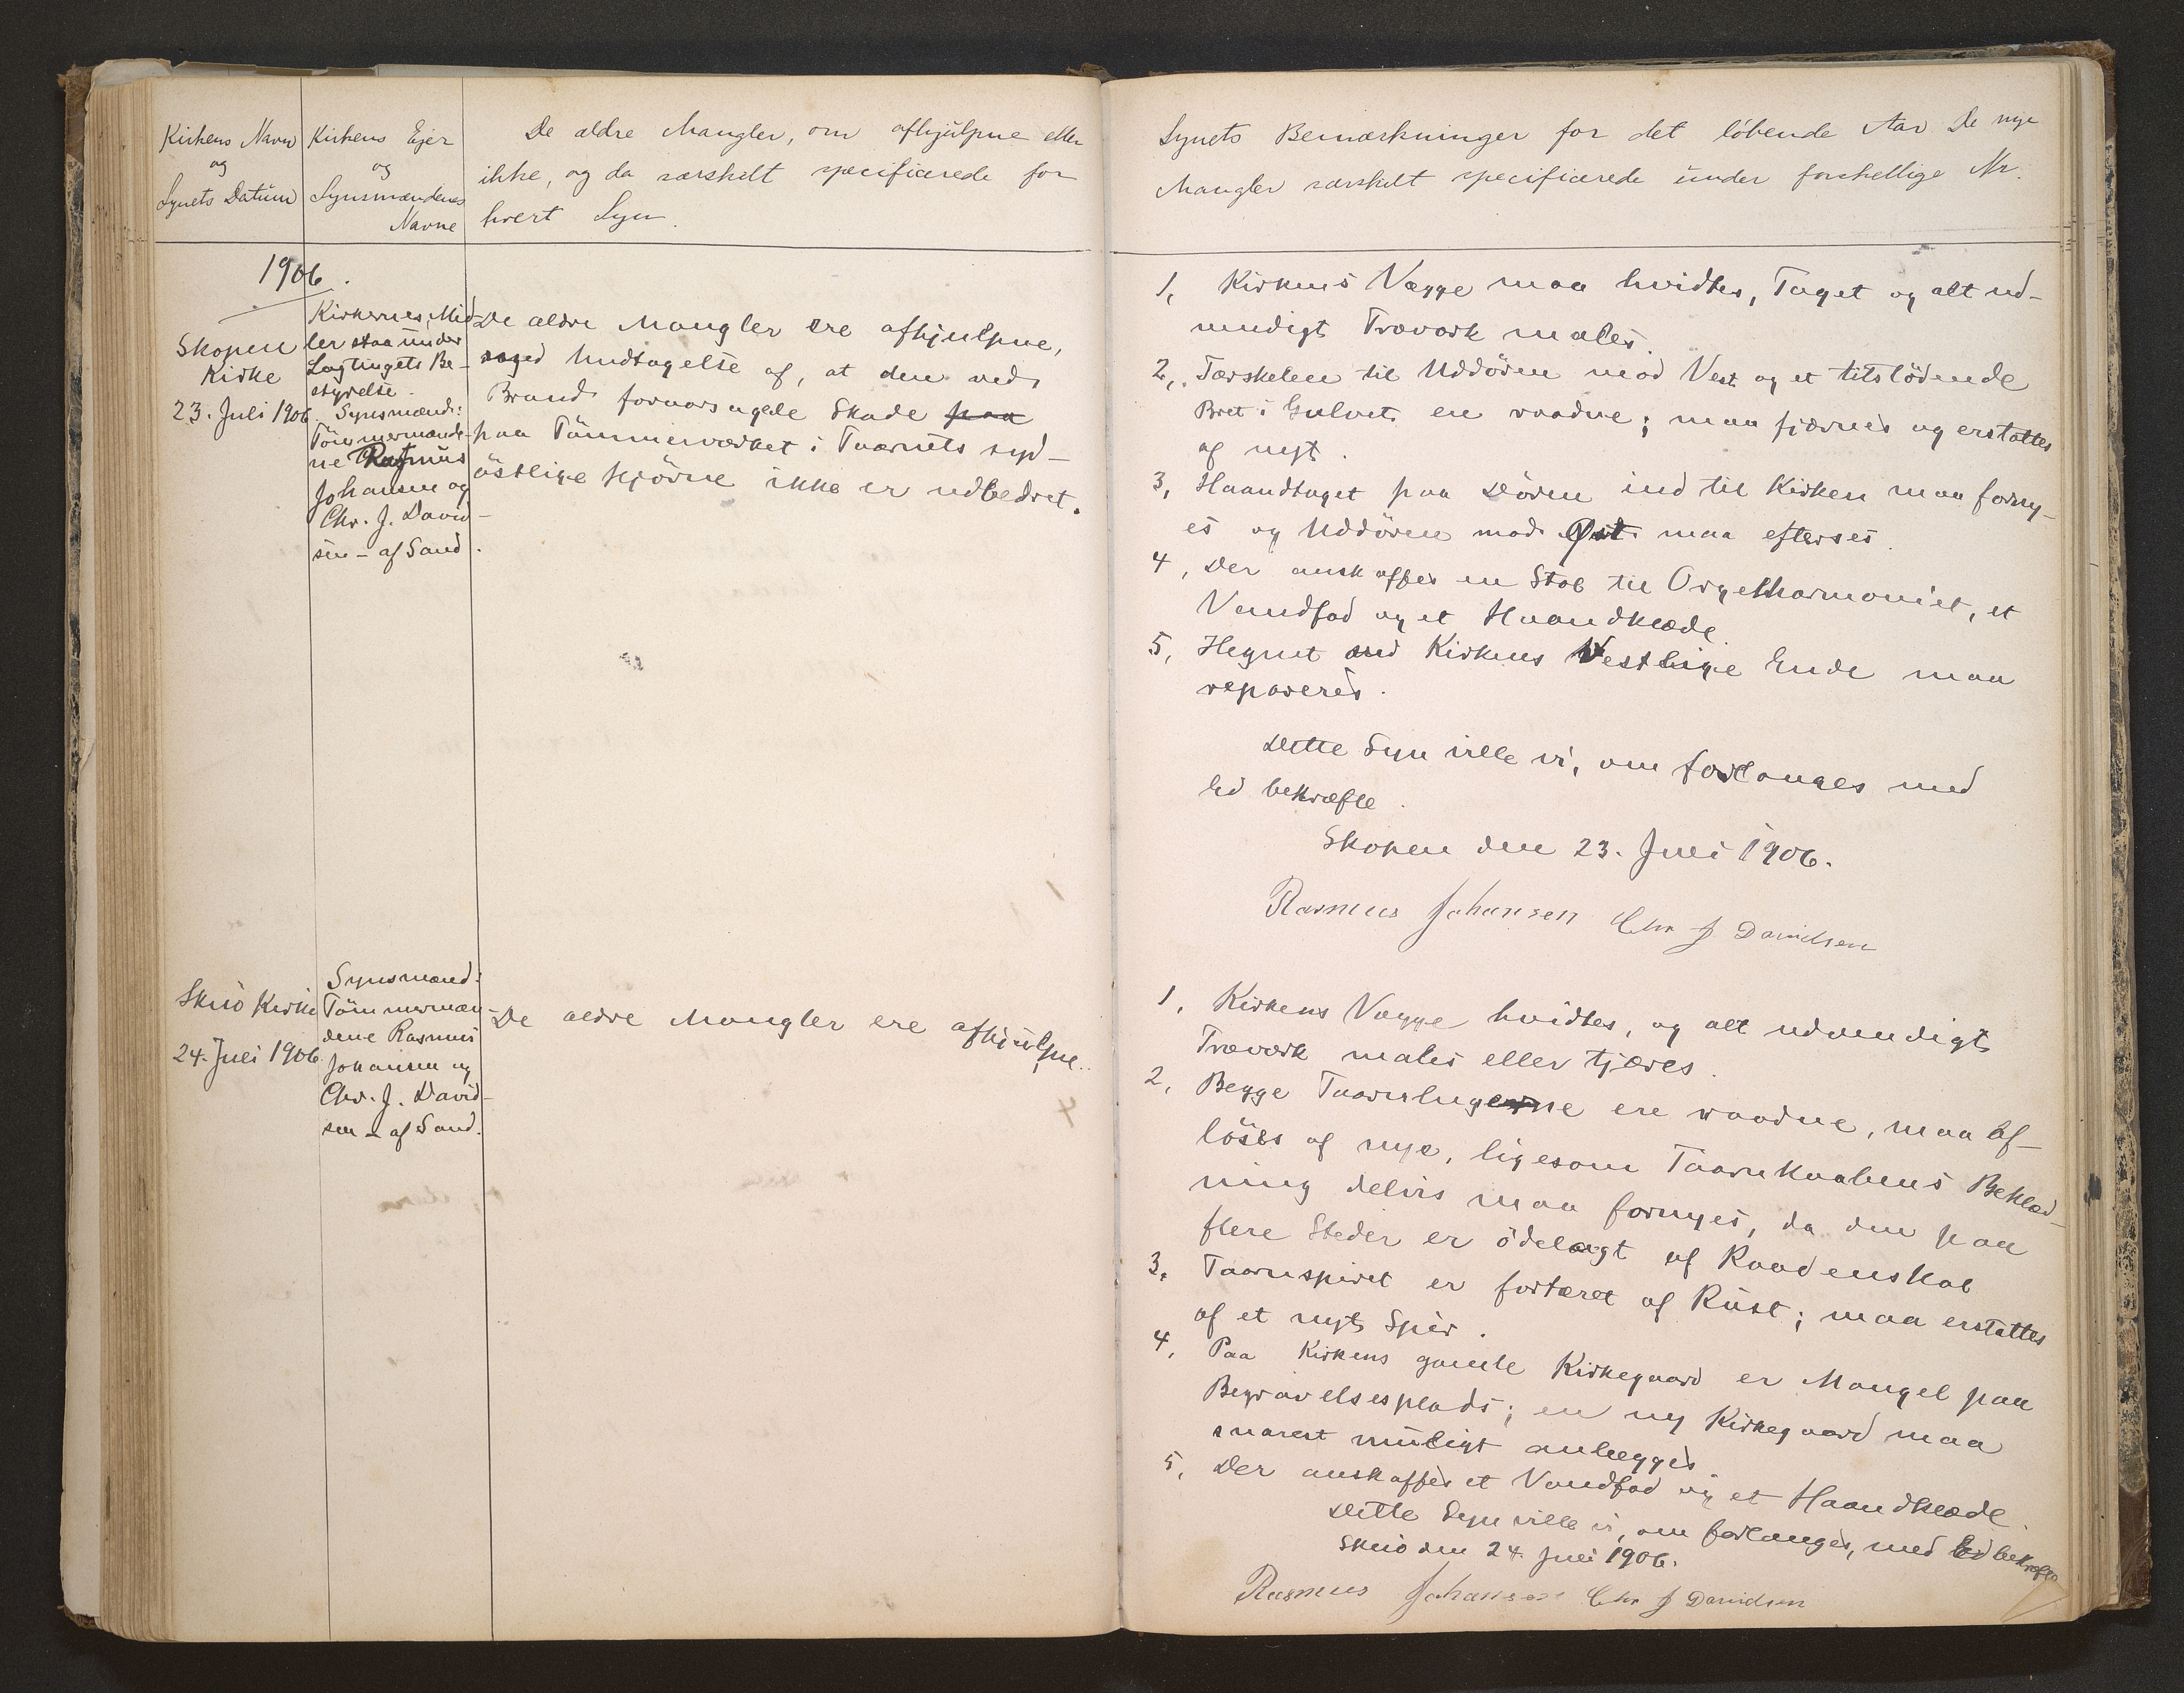 Kirkens Navn
og
Synets Datum
Kirkens Ejer
og
Synsmændenes
Navne
De ældre Mangler, om afhjulpne eller
ikke, og da særskilt specificerede for
hvert Syn.
1906.
Skopen
Kirke
23. Juli 1906.
Kirkernes Mid-
ler staa under
Lagtingets Be-
styrelse.
Synsmænd:
Tömmermænde-
ne Rasmus
Johansen og
Chr. J. David-
sen - af Sand.
De ældre Mangler ere afhjulpne,
med Undtagelse af, at den ved
Brand foraarsagede Skade paa
paa Tömmerværket i Taarnets syd-
östlige Hjörne ikke er udbedret.
Skuö Kirke
24. Juli 1906.
Synsmænd:
Tömmermæn-
dene Rasmus
Johansen og
Chr. J. David-
sen - af Sand.
De ældre Mangler ere afhjulpne.
Synets Bemærkninger for det löbende Aar De nye
Mangler særskilt specificerede under forskellige Nr.
1, Kirkens Vægge maa hvidtes, Taget og alt ud-
vendigt Træværk males.
2, Tærskelen til Uddören mod Vest og et tilstödende
Bret i Gulvet ere raadne; maa fjærnes og erstattes
af nyt.
3, Haandtaget paa Dören ind til Kirken maa forny-
es og Uddören mod Øst maa efterses.
4, Der anskaffes en Stol til Orgelharmoniet, et
Vandfad og et Haandklæde.
5, Hegnet ved Kirkens Vestlige Ende maa
repareres.
Dette Syn ville vi, om forlanges med
Ed bekræfte.
Skopen den 23. Juli 1906.
Rasmus Johansen Chr J Davidsen
1, Kirkens Vægge hvidtes, og alt udvendigt
Træværk males eller tjæres.
2, Begge Taarnlugerne ere raadne, maa af-
löses af nye, ligesom Taarnkaabens Beklæd-
ning delvis maa fornyes, da den paa
flere Steder er ödelagt af Raadenskab
3, Taarnspiret er fortæret af Rust; maa erstattes
af et nyt Spir.
4, Paa Kirkens gamle Kirkegaard er Mangel paa
Begravelsesplads; en ny Kirkegaard maa
snarest muligt anlægges
5, Der anskaffes et Vandfad og et Haandklæde.
Dette Syn ville vi, om forlanges, med Ed bekræfte
Skuö den 24. Juli 1906.
Rasmus Johansen Chr J Davidsen